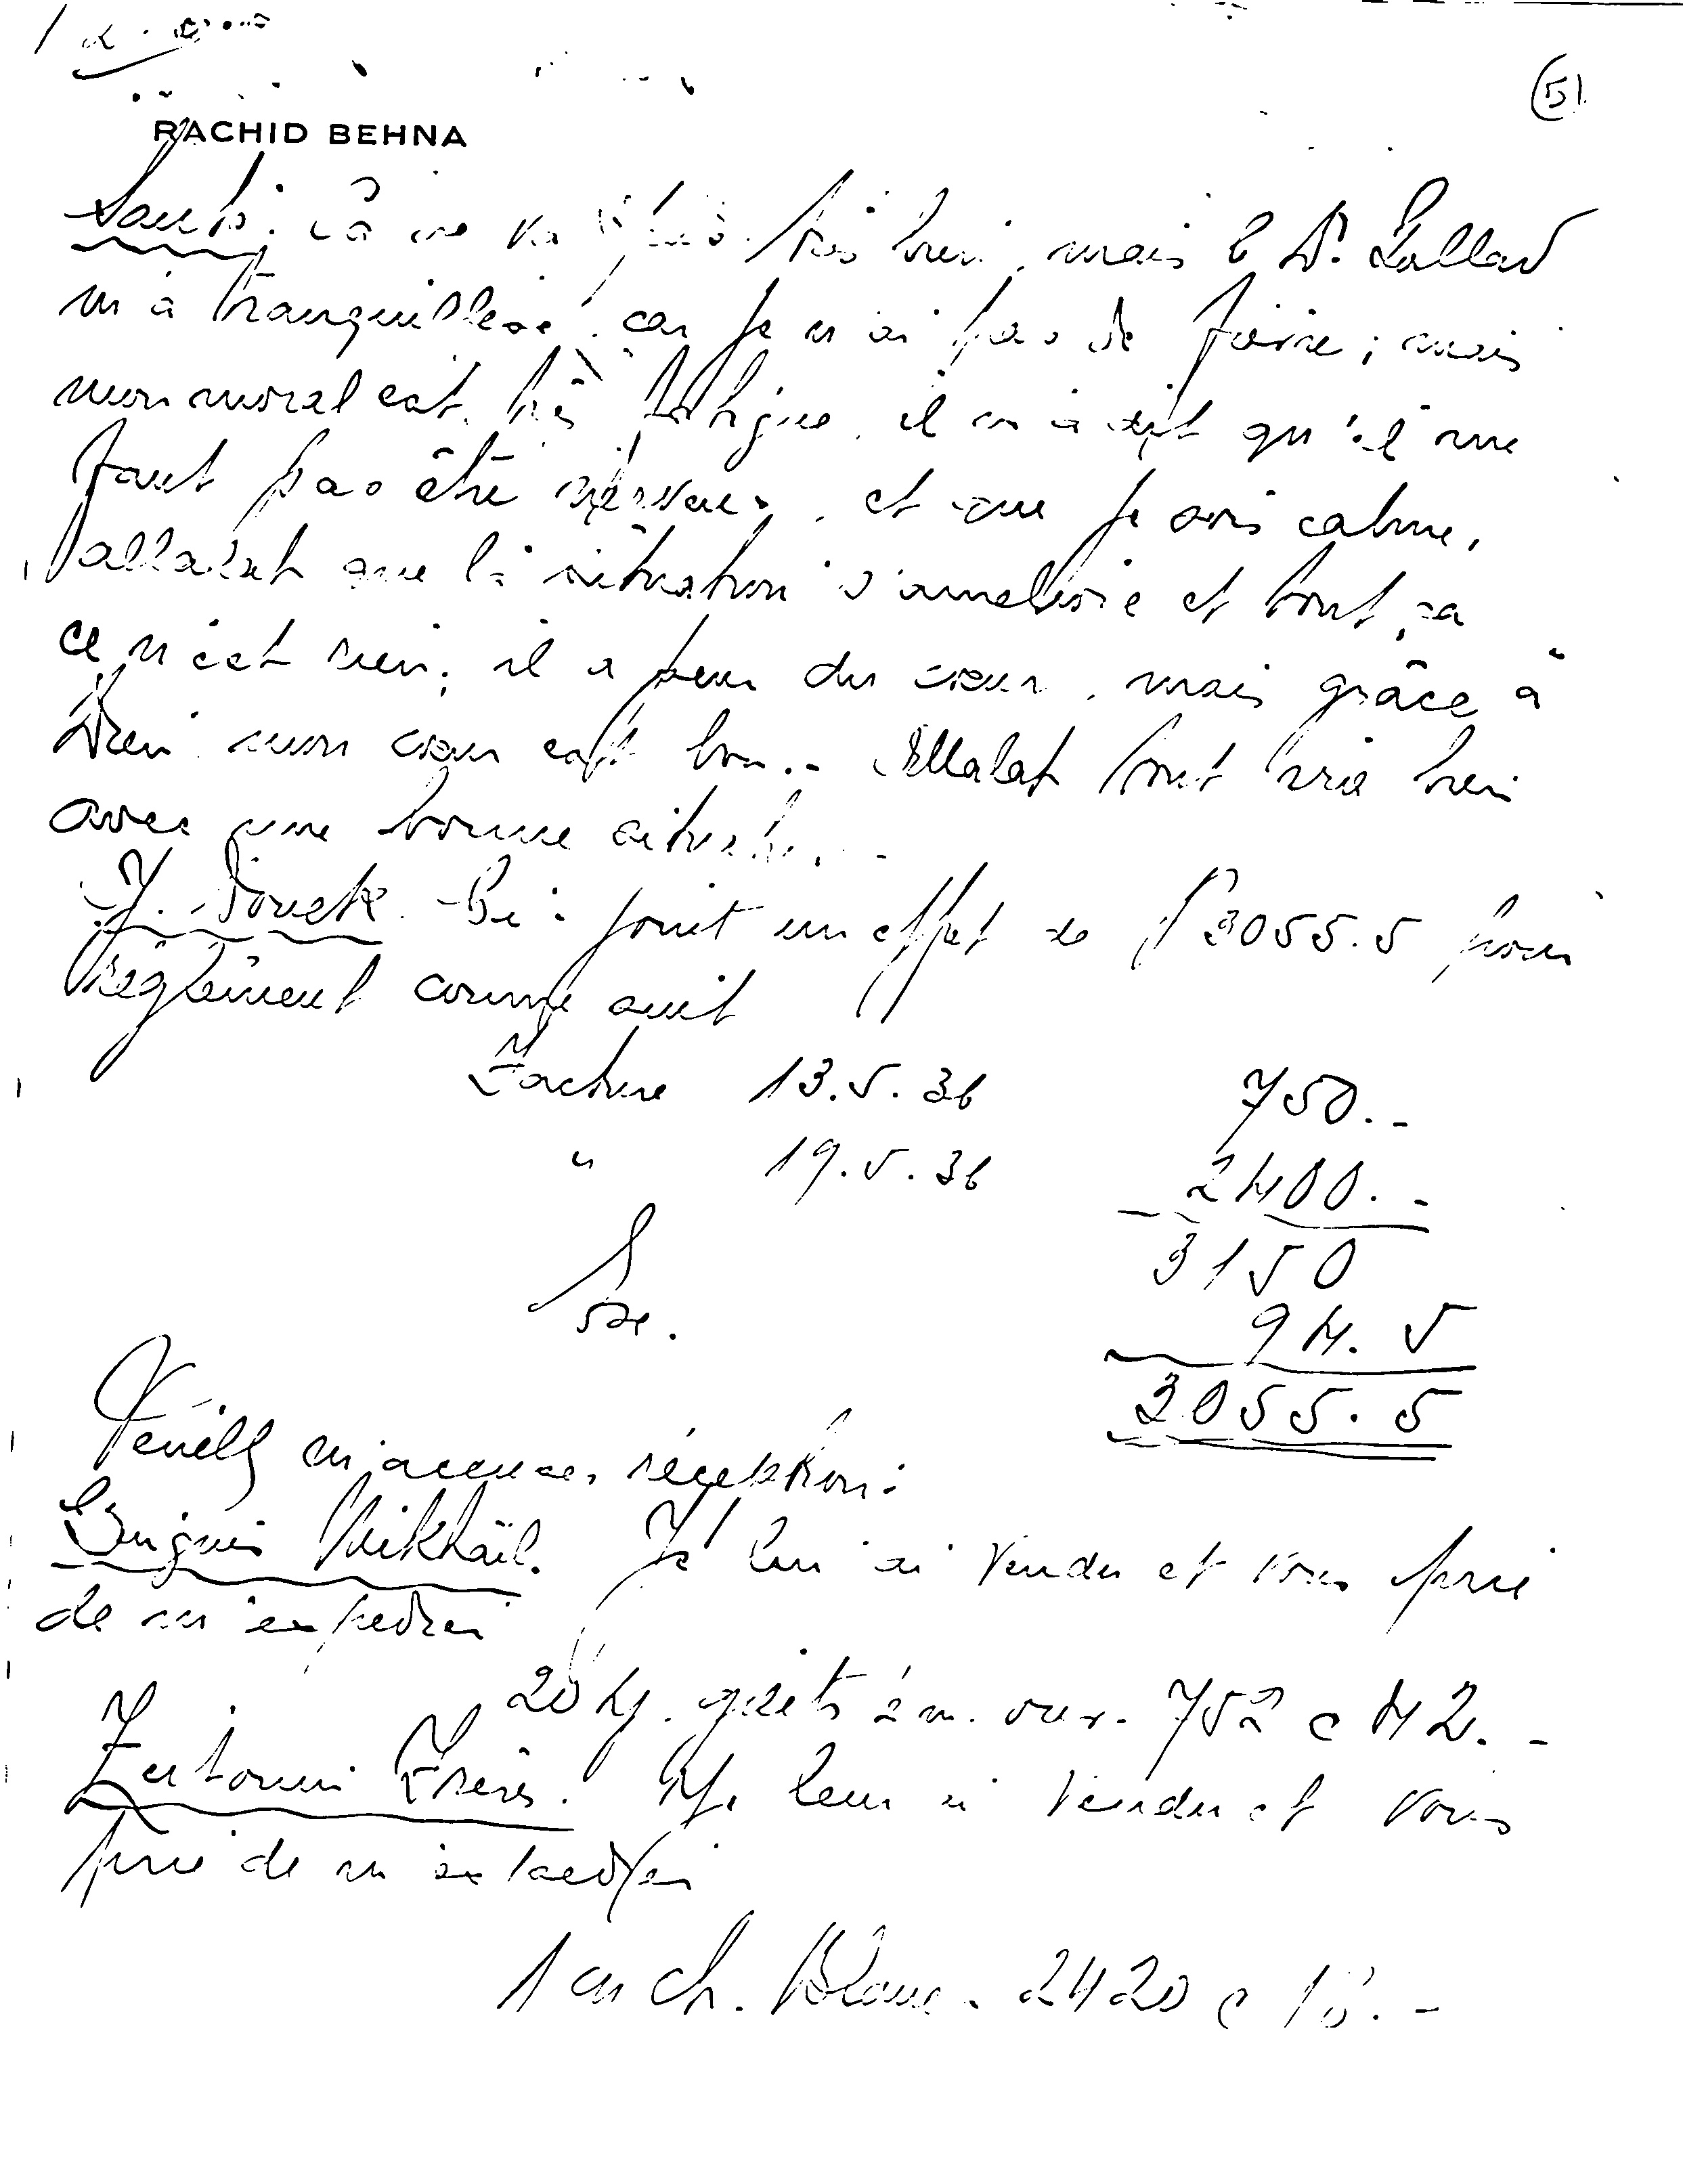 (5)
RACHID BEHNA
Santé. çà ne va pas très bien, mais le Dr. Lallad
m'a tranquillisé, car je n'ai pas de fièvre; mais
mon moral est très fatigué, il m'a dit qu'il me
faut pas être nerveux, et que je sois calme,
allalat que la situation s'ameliore et tout ça
ce n'est rien; il a peur du cœur, mais grâce à
Dieu mon cœur est bon.- Allalat tout ira bien
avec une bonne situat.
J. Douek. Ci-joint un effet de P 3055.5 pour
règlement comme suit
Facture 13.5.36 750.-
" 19.5.36 2400.-
3150
94.5
3055.5
Veuillez m'accuser réception.
Mikhaïl. Je lui ai vendu et vous prie
de m'expedier
20 Kg. 752 c 42.-
Zeitouni Frères. Je leur ai vendu et vous
prie de m'expedier
1 ch. Blanc. 2420 c